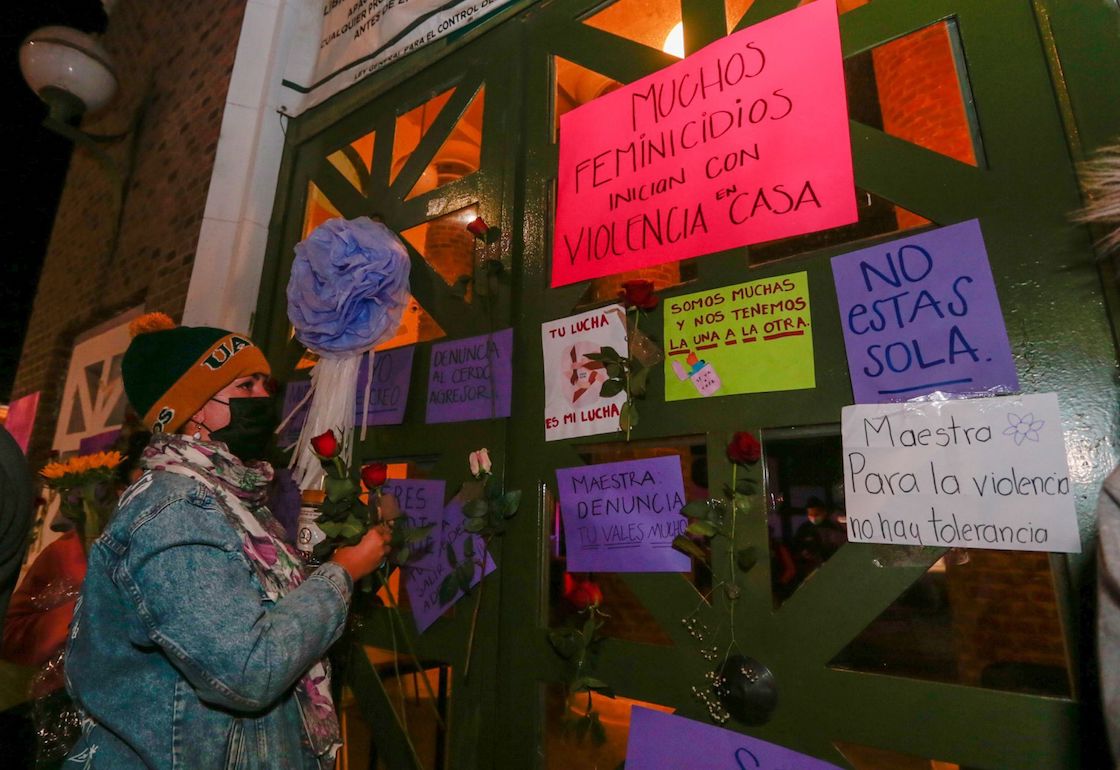 CUALQUIER PRO
ANTES DE
LEY GENERAL PARA EL CONTROL DE
MUCHOS
FEMINICIDIOS
INICIAN CON
VIOLENCIA EN CASA
NO
ESTAS
SOLA.
SOMOS MUCHAS
Y NOS TENEMOS
LA UNA A LA OTRA.
TU LUCHA
ES MI LUCHA
DENUNCIA
AL CERDO
AGREJOR
YO
CREO
UA
Maestra
Para la violencia
no hay tolerancia
MAESTRA:
DENUNCIA
TU VALES MUCHO
ERES